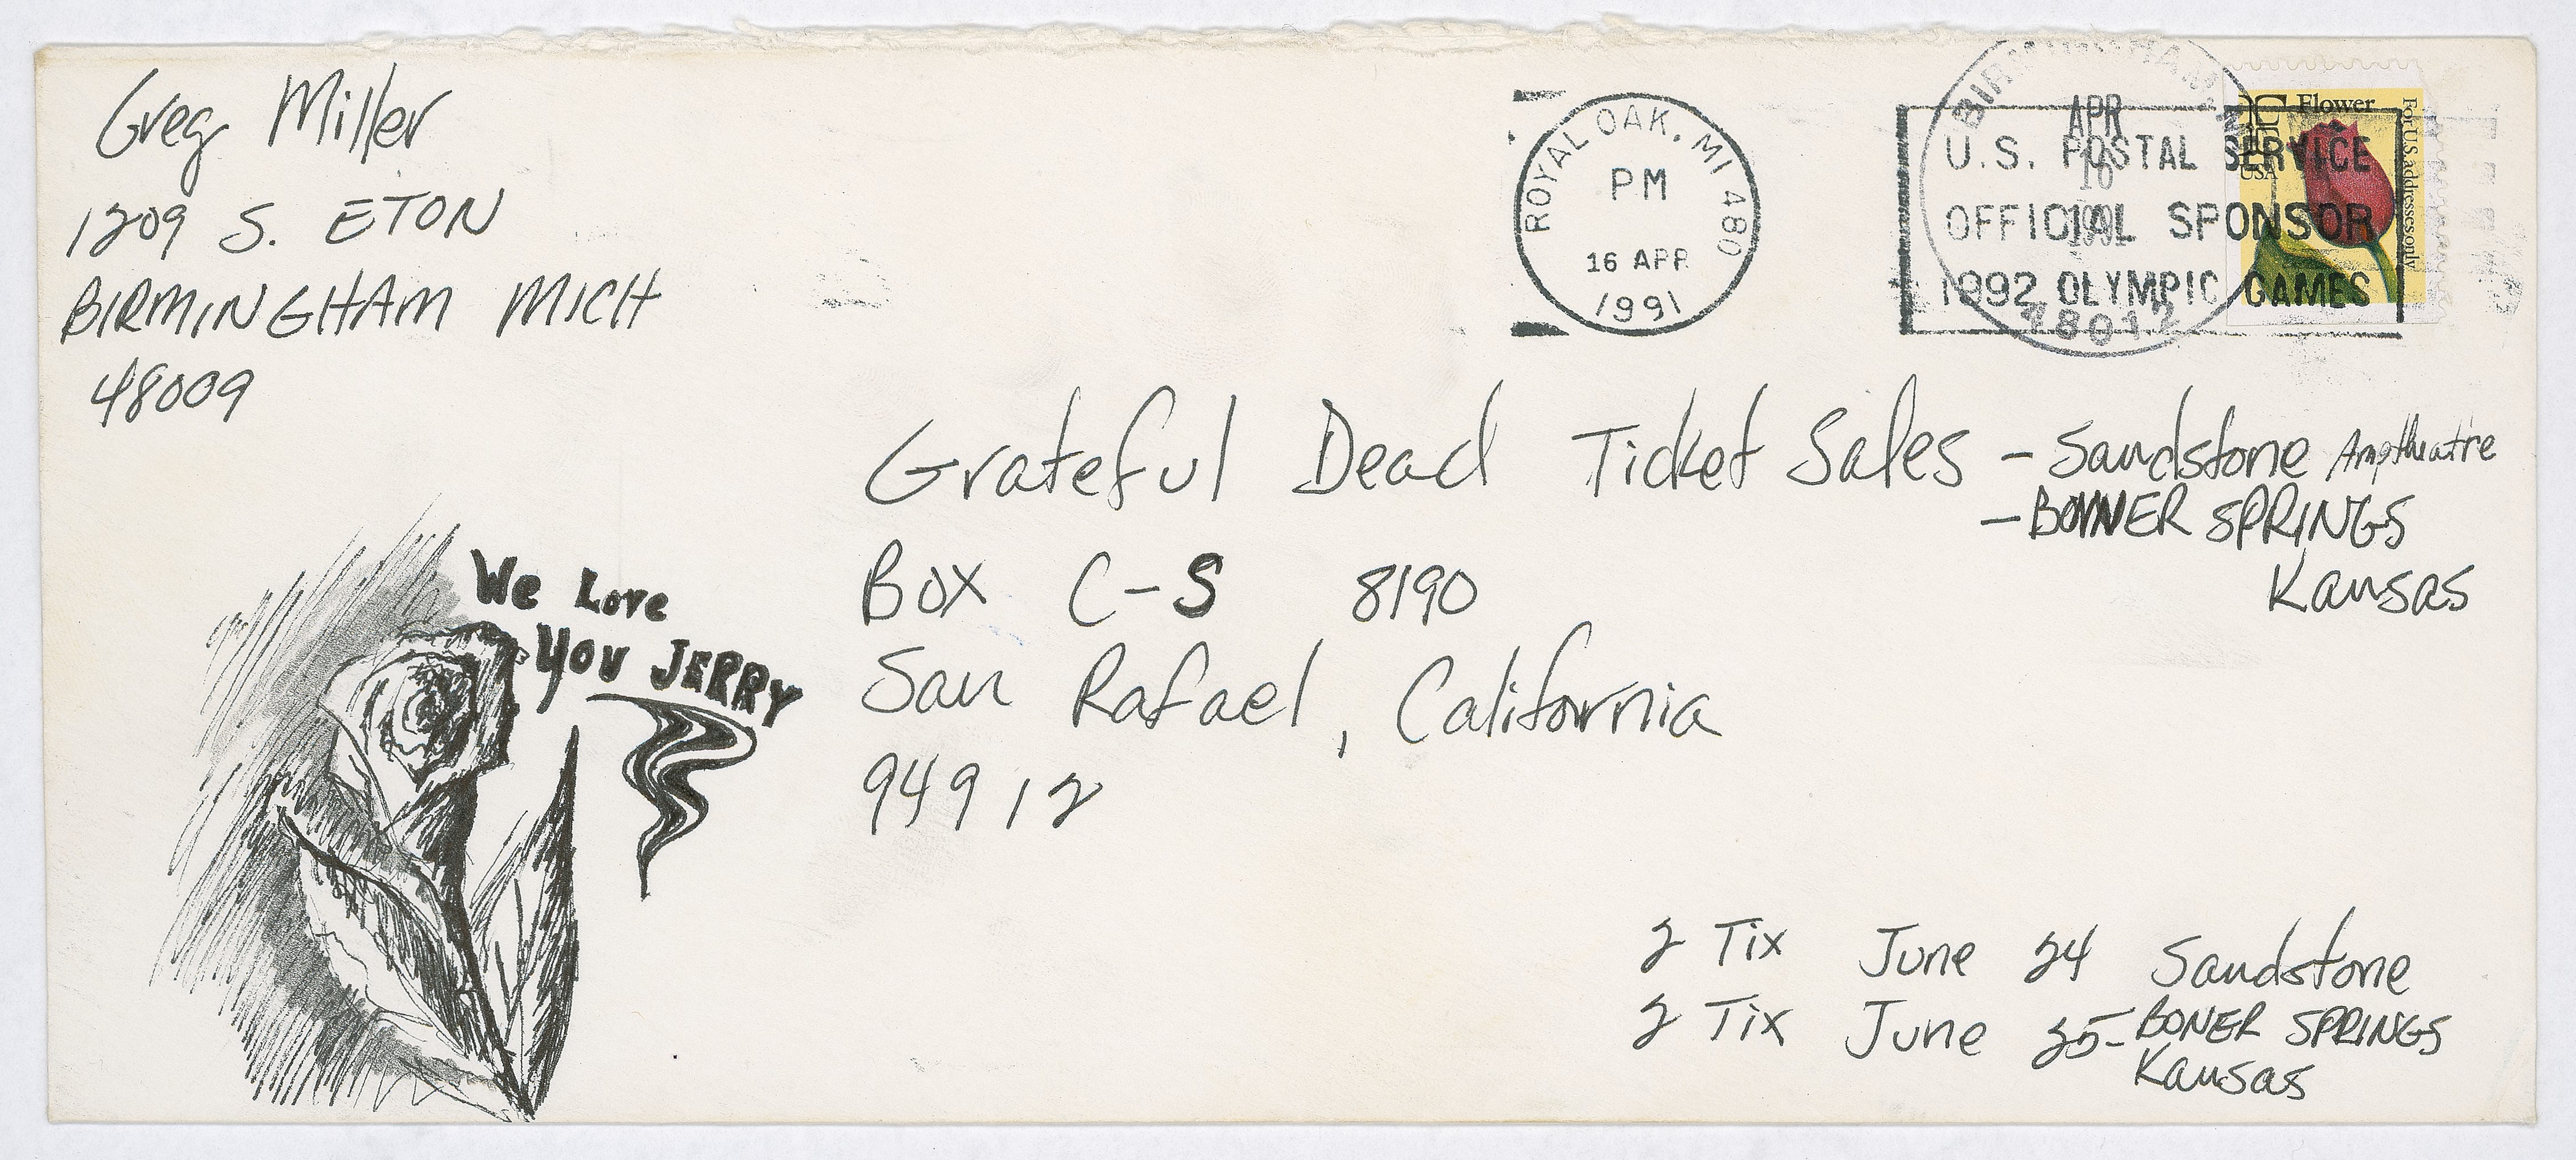 Greg Miller
1209 S. ETON
BIRMINGHAM MICH
48009
ROYAL OAK, MI 480
PM
16 APR
1991
BIRMINGHAM
APR
16
1991
48012
U.S. POSTAL SERVICE
OFFICIAL SPONSOR
1992 OLYMPIC GAMES
Flower
USA
For U.S. addresses only
Grateful Dead Ticket Sales - Sandstone Amptheatre
- BONNER SPRINGS
Kansas
Box C-S 8190
San Rafael, California
94912
We Love
You JERRY
2 Tix June 24 Sandstone
2 Tix June 25- BONER SPRINGS
Kansas